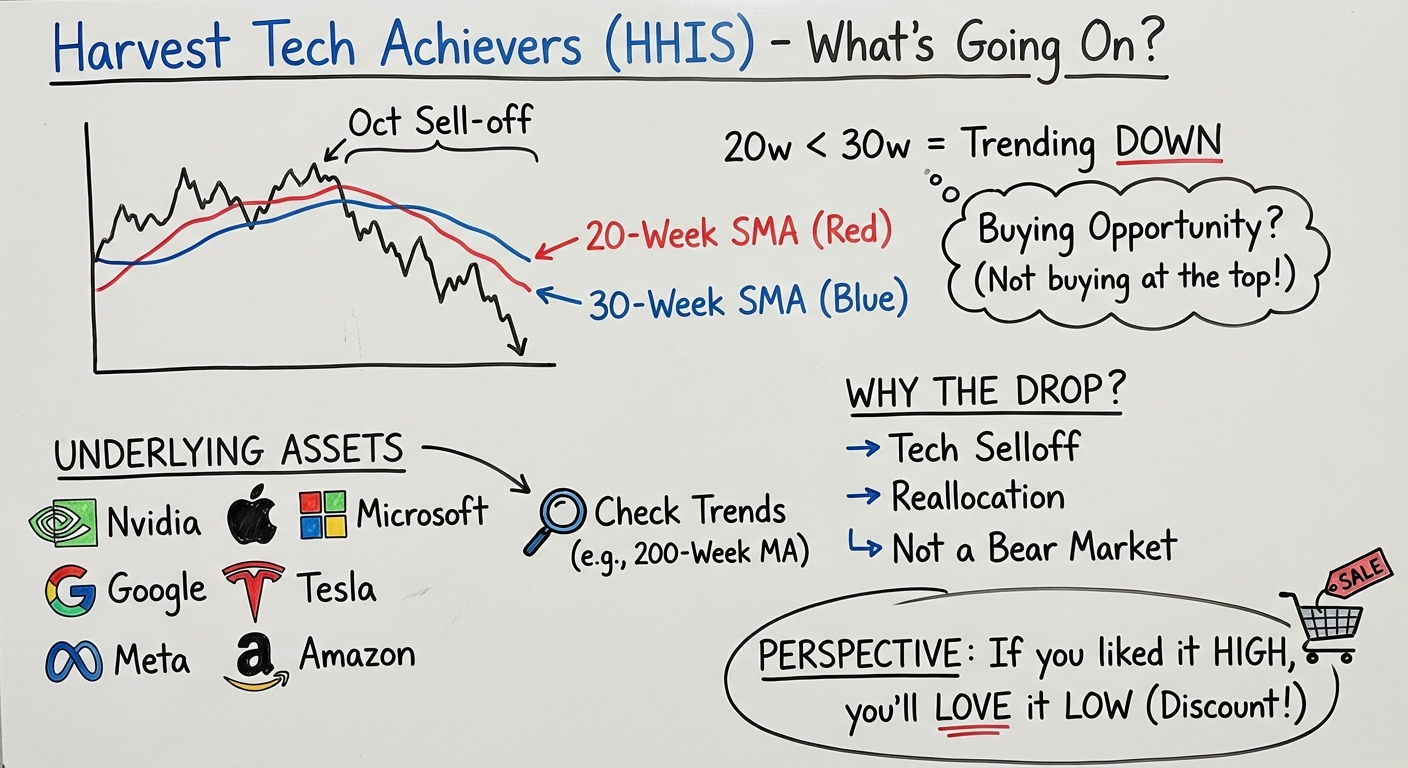 Harvest Tech Achievers (HHIS) - What's Going On?
Oct Sell-off
20w < 30w = Trending DOWN
Buying Opportunity?
(Not buying at the top!)
20-Week SMA (Red)
30-Week SMA (Blue)
WHY THE DROP?
→ Tech Selloff
→ Reallocation
↳ Not a Bear Market
UNDERLYING ASSETS
Nvidia
Microsoft
Google
Tesla
Meta
a Amazon
Check Trends
(e.g., 200-Week MA)
SALE
PERSPECTIVE: If you liked it HIGH,
you'll LOVE it LOW (Discount!)